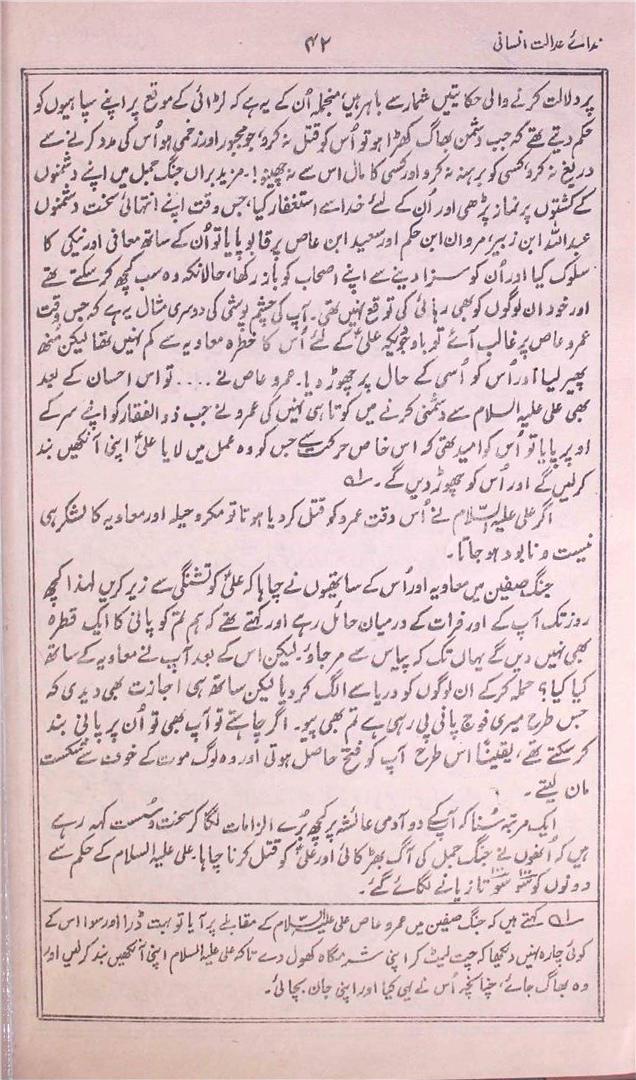 ندائے عدالت انسانی
۴۲
پر دلالت کرنے والی حکایتیں شمار سے باہر ہیں، منجملہ اُن کے یہ ہے کہ لڑائی کے موقع پر اپنے سپاہیوں کو
حکم دیتے تھے کہ جب دشمن بھاگ کھڑا ہو تو اُس کو قتل نہ کرو، جو مجبور اور زخمی ہو اُس کی مدد کرنے سے
دریغ نہ کرو، کسی کو برہنہ نہ کرو اور کسی کا مال اس سے نہ چھینو!۔ مزید براں جنگ جمل میں اپنے دشمنوں
کے کشتوں پر نماز پڑھی اور اُن کے لئے خدا سے استغفار کیا، جس وقت اپنے انتہائی سخت دشمنوں
عبداللہ ابن زبیر، مروان ابن حکم اور سعید ابن عاص پر قابو پایا تو اُن کے ساتھ معافی اور نیکی کا
سلوک کیا اور اُن کو سزا دینے سے اپنے اصحاب کو باز رکھا، حالانکہ وہ سب کچھ کر سکتے تھے
اور خود ان لوگوں کو بھی رہائی کی توقع نہیں تھی۔ آپ کی چشم پوشی کی دوسری مثال یہ ہے کہ جس وقت
عمرو عاص پر غالب آئے تو باوجودیکہ علیؑ کے لئے اُس کا خطرہ معاویہ سے کم نہیں تھا لیکن منھ
پھیر لیا اور اُس کو اُسی کے حال پر چھوڑ دیا۔ عمرو عاص نے .... تو اس احسان کے بعد
بھی علی علیہ السلام سے دشمنی کرنے میں کوتاہی نہیں کی عمرو نے جب ذوالفقار کو اپنے سر کے
اوپر پایا تو اُس کو امید تھی کہ اس خاص حرکت سے جس کو وہ عمل میں لایا علیؑ اپنی آنکھیں بند
کر لیں گے اور اُس کو چھوڑ دیں گے۔ ؎۱
اگر علی علیہ السّلام نے اُس وقت عمرو کو قتل کر دیا ہوتا تو مکر و حیلہ اور معاویہ کا لشکر ہی
نیست و نابود ہو جاتا۔
جنگ صفین میں معاویہ اور اُس کے ساتھیوں نے چاہا کہ علیؑ کو تشنگی سے زیر کریں لہذا کچھ
روز تک آپ کے اور فرات کے درمیان حائل رہے اور کہتے تھے کہ ہم تم کو پانی کا ایک قطرہ
بھی نہیں دیں گے یہاں تک کہ پیاس سے مر جاؤ۔ لیکن اس کے بعد آپ نے معاویہ کے ساتھ
کیا کیا؟ حملہ کر کے ان لوگوں کو دریا سے الگ کر دیا لیکن ساتھ ہی اجازت بھی دیدی کہ
جس طرح میری فوج پانی پی رہی ہے تم بھی پیو۔ اگر چاہتے تو آپ بھی تو اُن پر پانی بند
کر سکتے تھے، یقیناً اس طرح آپ کو فتح حاصل ہوتی اور وہ لوگ موت کے خوف سے شکست
مان لیتے۔
ایک مرتبہ سُنا کہ آپ کے دو آدمی عائشہ پر کچھ بُرے الزامات لگا کر سخت و سُست کہہ رہے
ہیں کہ اُنھوں نے جنگ جمل کی آگ بھڑکائی اور علیؑ کو قتل کرنا چاہا۔ علی علیہ السلام کے حکم سے
دونوں کو سو سو تازیانے لگائے گئے۔
؎۱ کہتے ہیں کہ جنگ صفین میں عمرو عاص علی علیہ السّلام کے مقابلے پر آیا تو بہت ڈرا اور سوا اس کے
کوئی چارہ نہیں دیکھا کہ چت لیٹ کر اپنی شرمگاہ کھول دے تاکہ علی علیہ السلام اپنی آنکھیں بند کر لیں اور
وہ بھاگ جائے، چنانچہ اُس نے یہی کیا اور اپنی جان بچائی۔